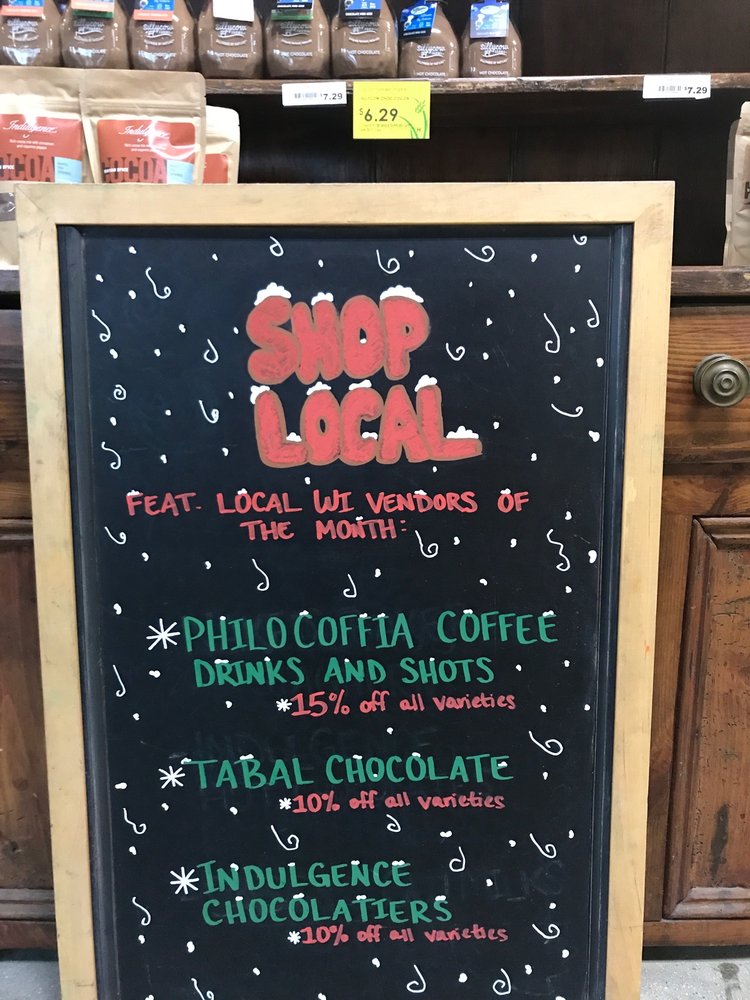 Sillycow
HOT CHOCOLATE
HOT CHOCOLATE
$7.29
$6.29
$7.29
Indulgence
Indulgence
COCOA
COCOA
SHOP
LOCAL
FEAT. LOCAL WI VENDORS OF
THE MONTH:
*PHILOCOFFIA COFFEE
DRINKS AND SHOTS
*15% off all varieties
*TABAL CHOCOLATE
*10% off all varieties
*INDULGENCE
CHOCOLATIERS
*10% off all varieties